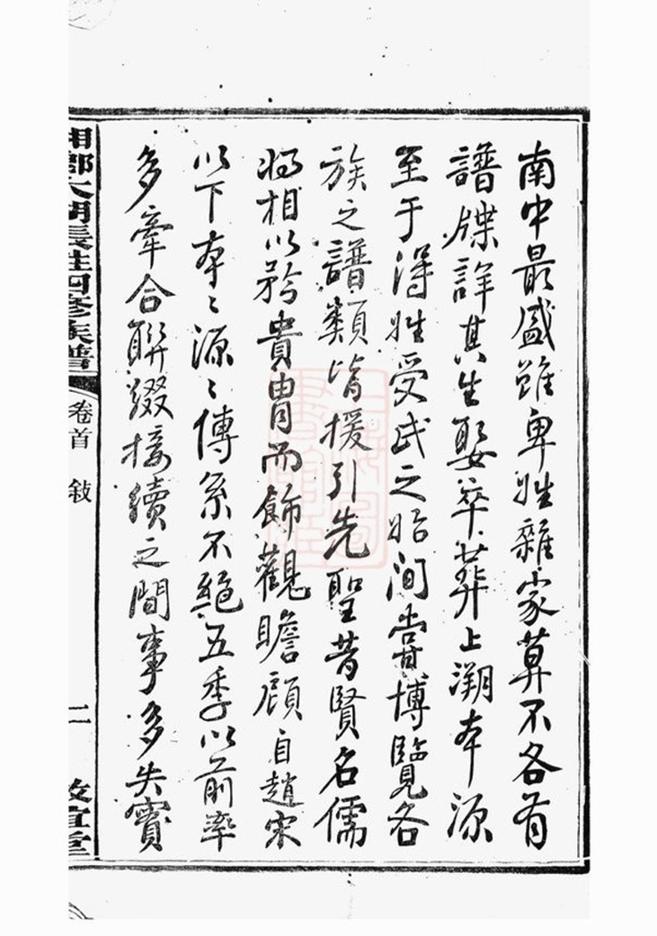 南中最盛雖卑姓雜家莫不各有
譜牒詳其生娶卒葬上溯本源
至于得姓受氏之始間嘗博覽各
族之譜類皆援引先聖昔賢名儒
將相以矜貴胄而飾觀瞻顧自趙宋
以下本〻源〻傳系不絕五季以前率
多牽合聯綴接續之間事多失實
湘鄉大湖張姓四修族譜
卷首 敘
二